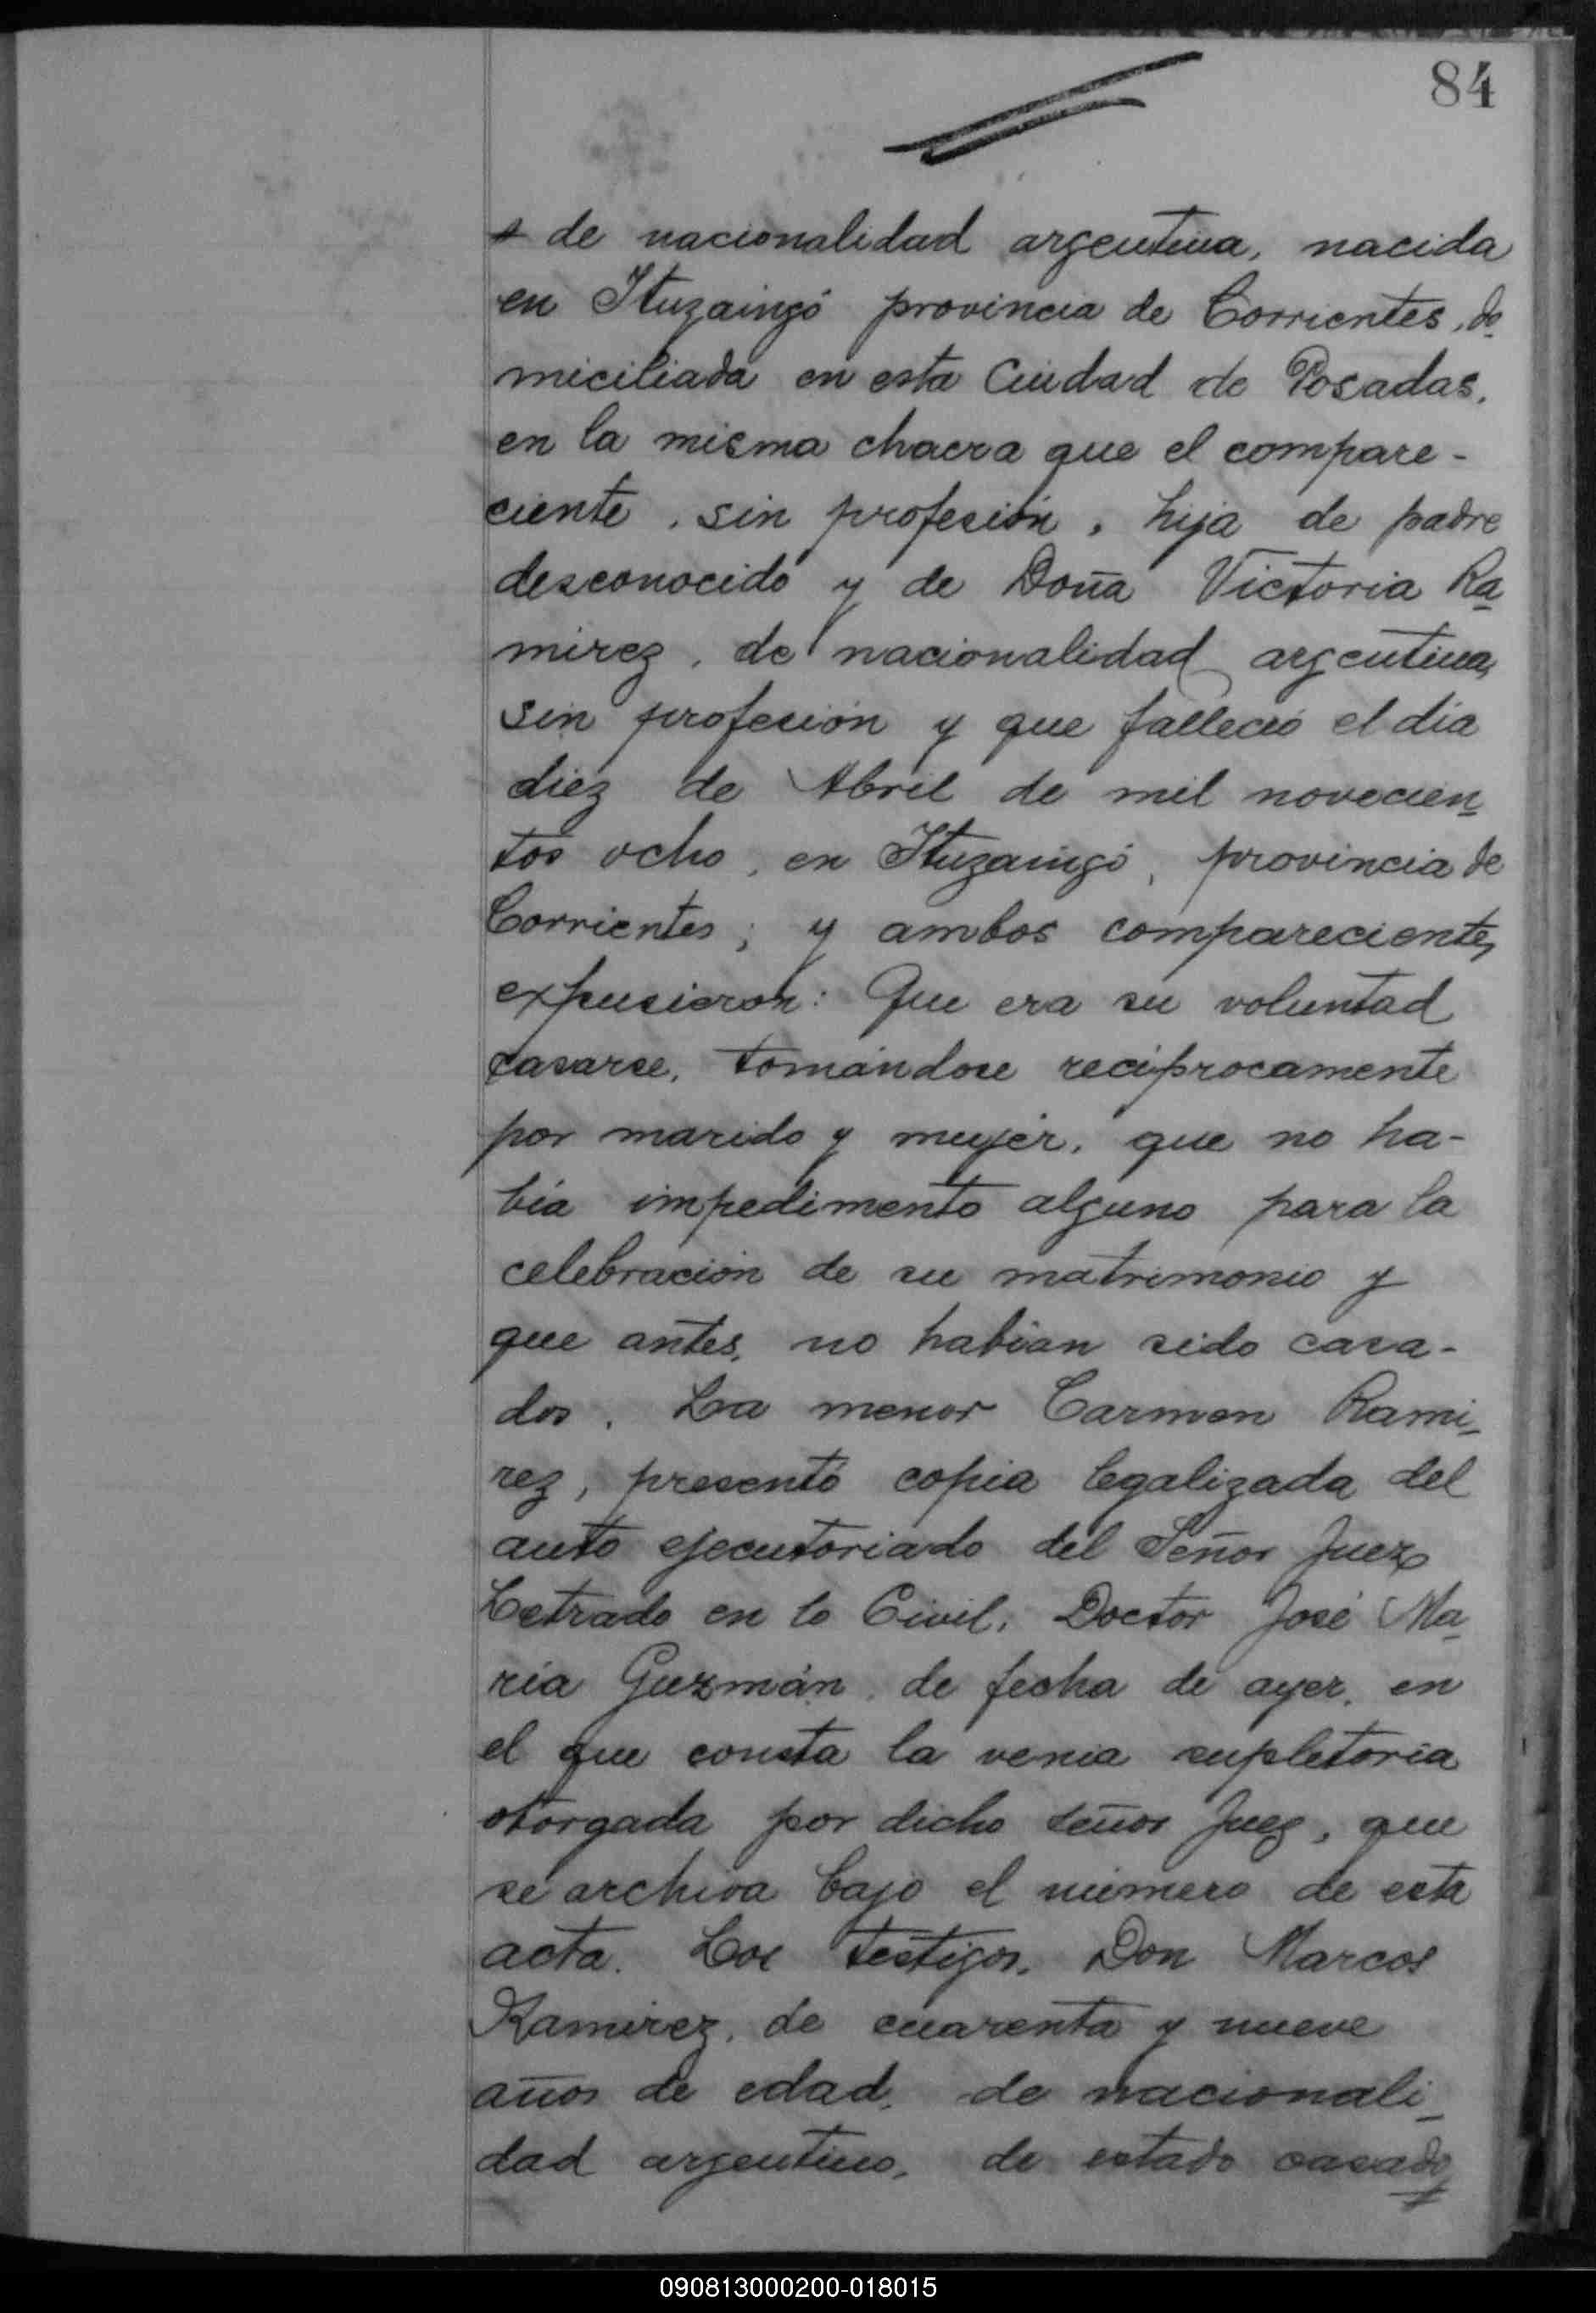 84
de nacionalidad argentina, nacida
en Ituzaingó provincia de Corrientes, do
miciliada en esta Ciudad de Posadas,
en la misma chacra que el compare-
ciente, sin profesión, hija de padre
desconocido y de Doña Victoria Ra
mirez, de nacionalidad argentina,
sin profesión y que falleció el día
diez de Abril de mil novecien
tos ocho, en Ituzaingó, provincia de
Corrientes; y ambos comparecientes
expusieron: Que era su voluntad
casarse, tomándose recíprocamente
por marido y mujer, que no ha-
bía impedimento alguno para la
celebración de su matrimonio y
que antes, no habían sido casa-
dos. La menor Carmen Rami
rez, presentó copia legalizada del
auto ejecutoriado del Señor Juez
Letrado en lo Civil, Doctor José Ma
ría Guzmán, de fecha de ayer, en
el que consta la venia supletoria
otorgada por dicho señor Juez, que
se archiva bajo el número de esta
acta. Los testigos, Don Marcos
Ramirez, de cuarenta y nueve
años de edad, de nacionali
dad argentino, de estado casado
090813000200-018015